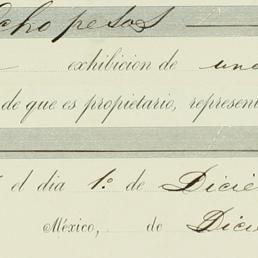 ocho pesos
exhibicion de una
de que es propietario, represent
el dia 1.º de Dicie
México, de Dicie